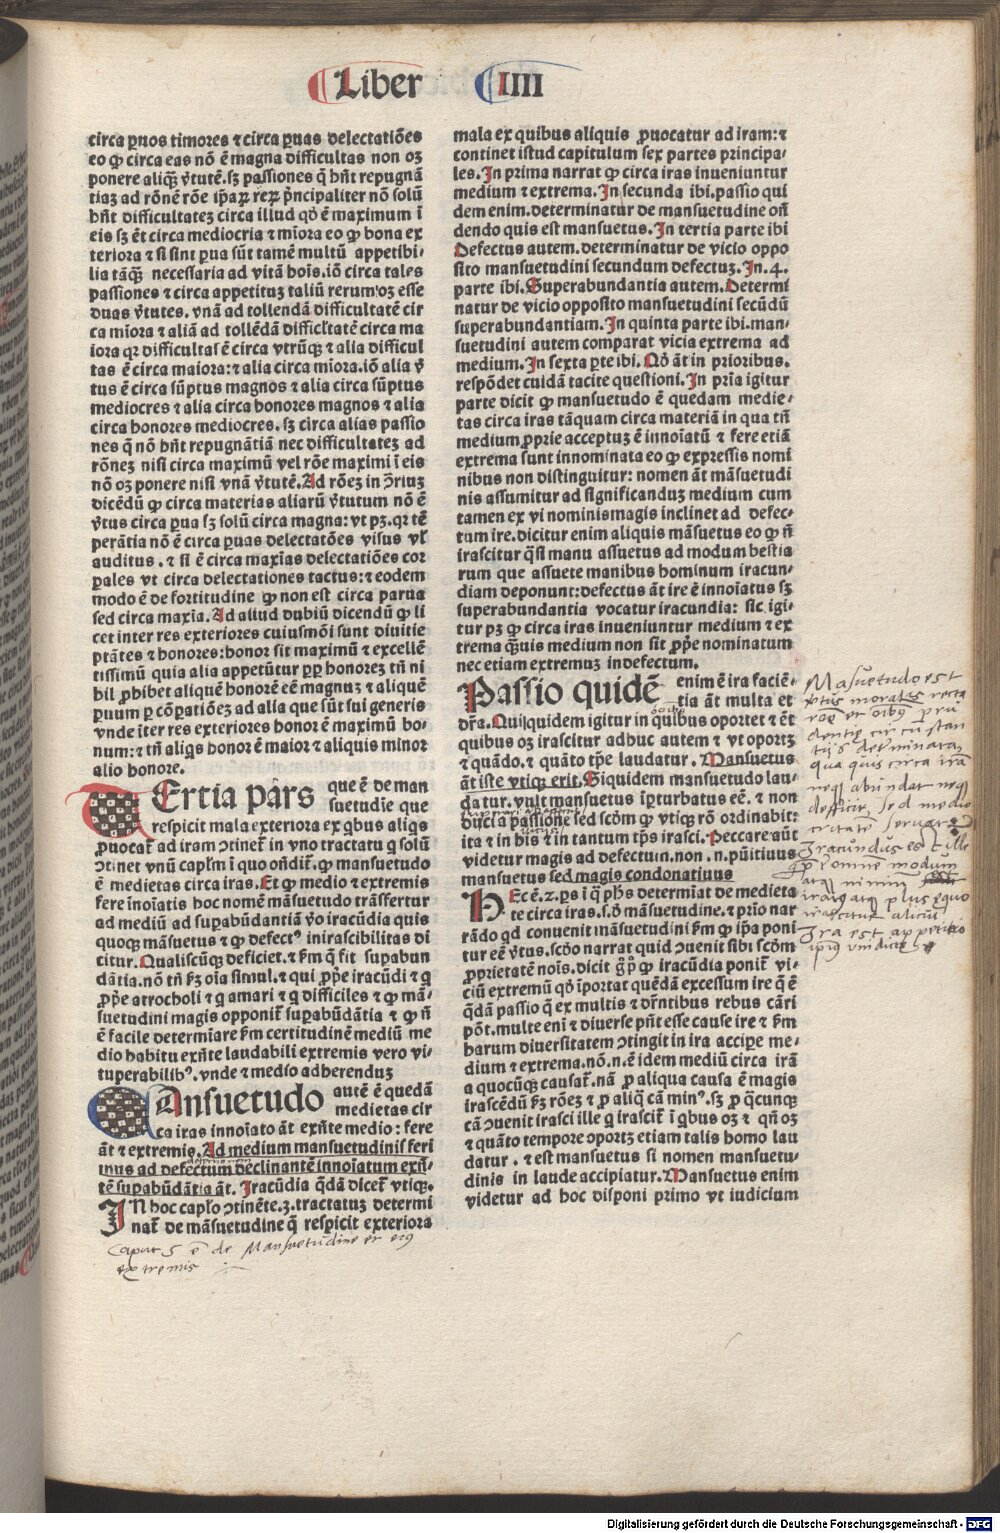 Liber IIII
circa ꝑuos timores ⁊ circa ꝑuas delectatiões
eo ꝙ circa eas nõ ẽ magna difficultas non oꝫ
ponere aliqua᷑ v̾tutẽ. sꝫ passiones q̃ hñt repugnã
tiaꝫ ad rõnẽ rõe ip̃aꝝ reꝝ p̃ncipaliter nõ solũ
hñt difficultateꝫ circa illud qđ ẽ maximum ĩ
eis sꝫ ẽt circa mediocria ⁊ mĩora eo ꝙ bona ex
teriora ⁊ si sint ꝑua sũt tamẽ multũ appetibi-
lia tãq̃ꝫ necessaria ad vitã hoĩs. iõ circa tales
passiones ⁊ circa appetituꝫ taliũ rerum oꝫ esse
duas v̾tutes. vnã ad tollendã difficultatẽ cir
ca mĩora ⁊ aliã ad tollẽdã difficl̃tatẽ circa ma
iora qꝛ difficultas ẽ circa vtrũqꝫ ⁊ alia difficul
tas ẽ circa maiora: ⁊ alia circa mĩora. iõ alia v̾
tus ẽ circa sũptus magnos ⁊ alia circa sũptus
mediocres ⁊ alia circa honores magnos ⁊ alia
circa honores mediocres. sꝫ circa alias passio
nes q̃ nõ hñt repugnãtiã nec difficultateꝫ ad
rõneꝫ nisi circa maximũ vel rõe maximi ĩ eis
nõ oꝫ ponere nisi vnã v̾tutẽ. Ad rõeꝫ in ꝯ̃riuꝫ
dicẽdũ ꝙ circa materias aliarũ v̾tutum nõ ẽ
v̾tus circa ꝑua sꝫ solũ circa magna: vt pꝫ. qꝛ tẽ
perãtia nõ ẽ circa ꝑuas delectatões visus vl̃
auditus. ⁊ si ẽ circa maxĩas delectatiões cor
ꝑales vt circa delectationes tactus: ⁊ eodem
modo ẽ de fortitudine ꝙ non est circa parua
sed circa maxĩa. Ad aliud dubiũ dicendũ ꝙ li
cet inter res exteriores cuiusmõi sunt diuitie
ptãtes ⁊ honores: honor sit maximũ ⁊ excellẽ
tissimũ quia alia appetũtur ꝓꝑ honoreꝫ tñ ni
bil ꝓhibet aliquẽ honorẽ eẽ magnuꝫ ⁊ aliquẽ
ꝑuum ꝑ cõꝑatiõeꝫ ad alia que sũt sui generis
vnde iter res exteriores honor ẽ maximũ bo-
num: ⁊ tñ aliq̃s honor ẽ maior ⁊ aliquis minor
alio honore.
Tertia pars que ẽ de man
suetudĩe que
respicit mala exteriora ex q̃bus aliq̃s
ꝓuocat᷑ ad iram ꝯtinet᷑ in vno tractatu q̃ solũ
ꝯtinet vnũ capl̃m ĩ quo oñdit᷑. ꝙ mansuetudo
ẽ medietas circa iras. Et ꝙ medio ⁊ extremis
fere ĩnoĩatis hoc nomẽ mãsuetudo trãsfertur
ad mediũ ad suꝑabũdantiã v̾o iracũdia quis
quoqꝫ mãsuetus ⁊ ꝙ defectꝰ inirascibilitas di
citur. Qualiscũqꝫ deficiet. ⁊ ẜm q̃ fit suꝑabun
dãtia. nõ tñ ẜꝫ oĩa simul. ⁊ qui ꝓp̃e iracũdi ⁊ q̃
ꝓp̃e atrocholi ⁊ q̃ amari ⁊ q̃ difficiles ⁊ ꝙ mã-
suetudini magis opponit᷑ suꝑabũdãtia ⁊ ꝙ ñ
ẽ facile determĩare ẜm certitudinẽ mediũ me
dio habitu exñte laudabili extremis vero vi-
tuperabilibꝰ. vnde ⁊ medio adherenduꝫ
Mansuetudo autẽ ẽ quedã
medietas cir
ca iras innoĩato ãt exñte medio: fere
ãt ⁊ extremis. Ad medium mansuetudinis feri
mus ad defectum declinantẽ innoĩatum exñ-
tẽ suꝑabũdãtia ãt. Iracũdia q̃dã dicet᷑ vtiqꝫ.
IN hoc capl̃o ꝯtinẽte. 3. tractatuꝫ determi
nat᷑ de mãsuetudine q̃ respicit exteriora
Caput 5 ẽ de Mansuetudine et eiꝰ
extremis
mala ex quibus aliquis ꝓuocatur ad iram: ⁊
continet istud capitulum sex partes principa-
les. In prima narrat ꝙ circa iras inueniuntur
medium ⁊ extrema. In secunda ibi. passio qui
dem enim. determinatur de mansuetudine oñ
dendo quis est mansuetus. In tertia parte ibi
Defectus autem. determinatur de vicio oppo
sito mansuetudini secundum defectuꝫ. In. 4.
parte ibi. Superabundantia autem. Determi
natur de vicio opposito mansuetudini secũdũ
superabundantiam. In quinta parte ibi. man-
suetudini autem comparat vicia extrema ad
medium. In sexta ꝑte ibi. Qđ ãt in prioribus.
respõdet cuidã tacite questioni. In prĩa igitur
parte dicit ꝙ mansuetudo ẽ quedam medie-
tas circa iras tãquam circa materiã in qua tñ
medium ꝓprie acceptuꝫ ẽ innoĩatũ ⁊ fere etiã
extrema sunt innominata eo ꝙ expressis nomi
nibus non distinguitur: nomen ãt mãsuetudi
nis assumitur ad significanduꝫ medium cum
tamen ex vi nominis magis inclinet ad defec-
tum ire. dicitur enim aliquis mãsuetus eo ꝙ ñ
irascitur q̃si manu assuetus ad modum bestia
rum que assuete manibus hominum iracun-
diam deponunt: defectus ãt ire ẽ innoĩatus sꝫ
superabundantia vocatur iracundia: sic igi-
tur pꝫ ꝙ circa iras inueniuntur medium ⁊ ex
trema q̃uis medium non sit ꝓp̃e nominatum
nec etiam extremuꝫ in defectum.
Passio quidẽ enim ẽ ira faciẽ-
tia ãt multa et
dr̃a. Qui quidem igitur in quibus oportet ⁊ ẽt
quibus oꝫ irascitur adhuc autem ⁊ vt oportꝫ
⁊ quãdo. ⁊ quãto tp̃e laudatur. Mansuetus
ãt iste vtiqꝫ erit. Siquidem mansuetudo lau-
datur. vult mansuetus ĩꝑturbatus eẽ. ⁊ non
duci a passione sed scõm ꝙ vtiqꝫ rõ ordinabit:
ita ⁊ in his ⁊ in tantum tp̃s irasci. Peccare aũt
videtur magis ad defectum. non. n. pũitiuus
mansuetus sed magis condonatiuus
HEc ẽ. 2. ꝑs ĩ q̃ ph̃s determĩat de medieta
te circa iras. s. đ mãsuetudine. ⁊ prĩo nar
rãdo qđ conuenit mãsuetudini ẜm ꝙ ip̃a poni
tur eẽ v̾tus. scđo narrat quid ꝯuenit sibi scõm
ꝓprietatẽ noĩs. dicit g̃ p̃ ꝙ iracũdia ponit᷑ vi-
ciũ extremũ qđ ĩportat quẽdã excessum ire q̃ ẽ
q̃dã passio q̃ ex multis ⁊ dr̃ntibus rebus cãri
põt. multe enĩ ⁊ diuerse pñt esse cause ire ⁊ ẜm
harum diuersitatem ꝯtingit in ira accipe me-
dium ⁊ extrema. nõ. n. ẽ idem mediũ circa irã
a quocũqꝫ causat᷑. nã ꝓ aliqua causa ẽ magis
irascẽdũ ẜꝫ rõeꝫ ⁊ ꝓ aliq̃ cã minꝰ. sꝫ ꝓ q̃cunqꝫ
cã ꝯuenit irasci ille q̃ irascit᷑ ĩ q̃bus oꝫ ⁊ qñ oꝫ
⁊ quãto tempore oportꝫ etiam talis homo lau
datur. ⁊ est mansuetus si nomen mansuetu-
dinis in laude accipiatur. Mansuetus enim
videtur ad hoc disponi primo vt iudicium
Masuetudo est
v̾tus moralis recta
circa irã
neqꝫ abũdat neqꝫ
deficit, sed medio
Iracũdus est ille
Ira est appetitio
Digitalisierung gefördert durch die Deutsche Forschungsgemeinschaft - DFG